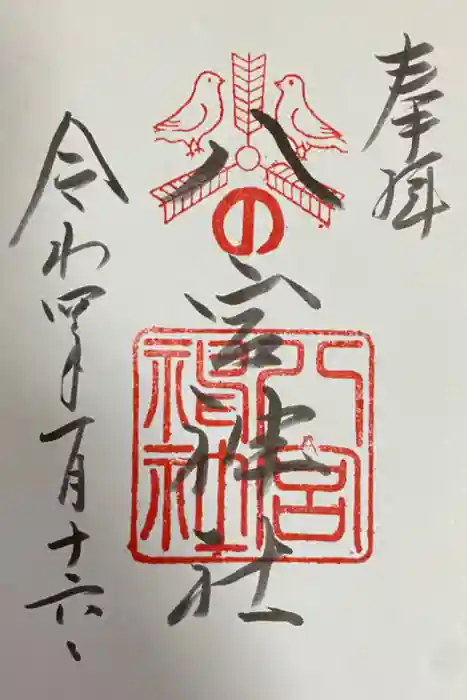 奉拝
八の宮神社
八宮神社
令和四年一月十六日